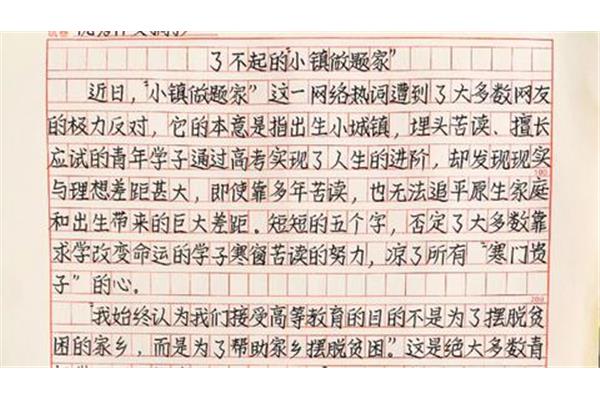 了不起的“小镇做题家”
近日,“小镇做题家”这一网络热词遭到了大多数网友
的极力反对,它的本意是指出生小城镇,埋头苦读、擅长
应试的青年学子通过高考实现了人生的进阶,却发现现实
100
与理想差距甚大,即使靠多年苦读,也无法追平原生家庭
和出生带来的巨大差距。短短的五个字,否定了大多数靠
求学改变命运的学子寒窗苦读的努力,凉了所有“寒门贵
子”的心。
200
“我始终认为我们接受高等教育的目的不是为了摆脱贫
困的家乡,而是为了帮助家乡摆脱贫困。”这是绝大多数青